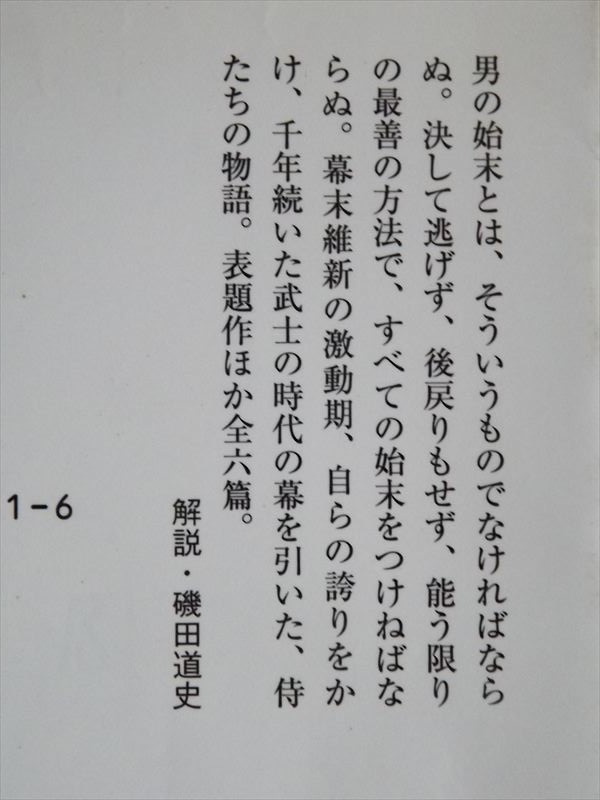 男の始末とは、そういうものでなければなら
ぬ。決して逃げず、後戻りもせず、能う限り
の最善の方法で、すべての始末をつけねばな
らぬ。幕末維新の激動期、自らの誇りをか
け、千年続いた武士の時代の幕を引いた、侍
たちの物語。表題作ほか全六篇。
解説・磯田道史
1-6